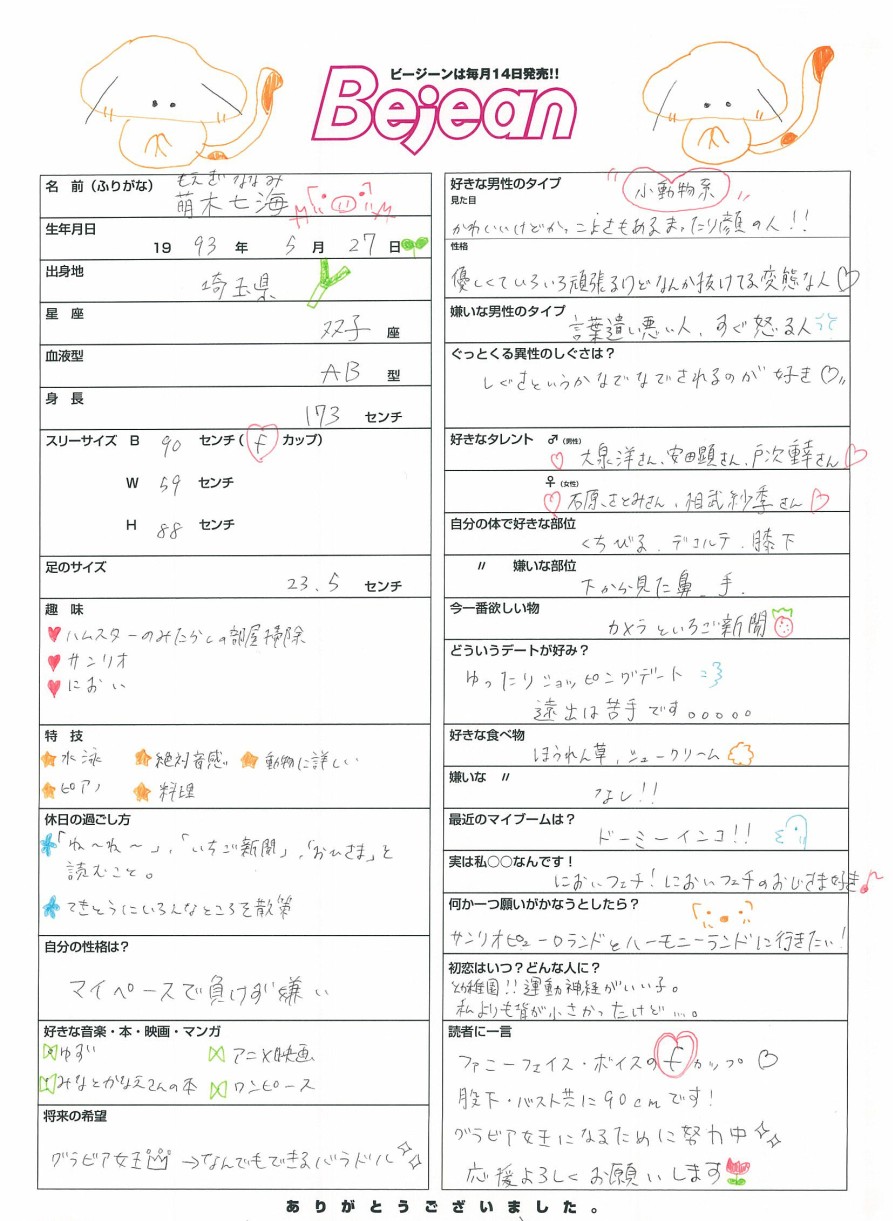 ビージーンは毎月14日発売!!
Bejean
名 前（ふりがな） もえぎ ななみ
萌木七海
生年月日
19 93 年 5 月 27 日
出身地
埼玉県
星 座
双子 座
血液型
AB 型
身 長
173 センチ
スリーサイズ B 90 センチ( f カップ)
W 59 センチ
H 88 センチ
足のサイズ
23.5 センチ
趣 味
ハムスターのみたらしの部屋掃除
サンリオ
におい
特 技
水泳 絶対音感 動物に詳しい
ピアノ 料理
休日の過ごし方
「ね〜ね〜」,「いちご新聞」,「おひさま」と
読むこと。
てきとうにいろんなところを散策
自分の性格は？
マイペースで負けず嫌い
好きな音楽・本・映画・マンガ
ゆず アニメ映画
みなとかなえさんの本 ワンピース
将来の希望
グラビア女王 →なんでもできるバラドル
好きな男性のタイプ
小動物系
見た目
かわいいけどかっこよさもあるまったり顔の人!!
性格
優しくていろいろ頑張るけどなんか抜けてる変態な人
嫌いな男性のタイプ
言葉遣い悪い人、すぐ怒る人
ぐっとくる異性のしぐさは？
しぐさというかなでなでされるのが好き
好きなタレント ♂（男性）
大泉洋さん、安田顕さん、戸次重幸さん
♀（女性）
石原さとみさん、相武紗季さん
自分の体で好きな部位
くちびる、デコルテ、膝下
〃 嫌いな部位
下から見た鼻、手、
今一番欲しい物
カメラといちご新聞
どういうデートが好み？
ゆったりショッピングデート
遠出は苦手です。。。。。
好きな食べ物
ほうれん草、シュークリーム
嫌いな 〃
なし!!
最近のマイブームは？
ドーミーインコ!!
実は私○○なんです！
においフェチ!においフェチのおじさま好き♪
何か一つ願いがかなうとしたら？
サンリオピューロランドとハーモニーランドに行きたい!
初恋はいつ？どんな人に？
幼稚園!!運動神経がいい子。
私よりも背が小さかったけど…。
読者に一言
ファニーフェイス・ボイスのfカップ♡
股下・バスト共に90cmです!
グラビア女王になるために努力中
応援よろしくお願いします
ありがとうございました。